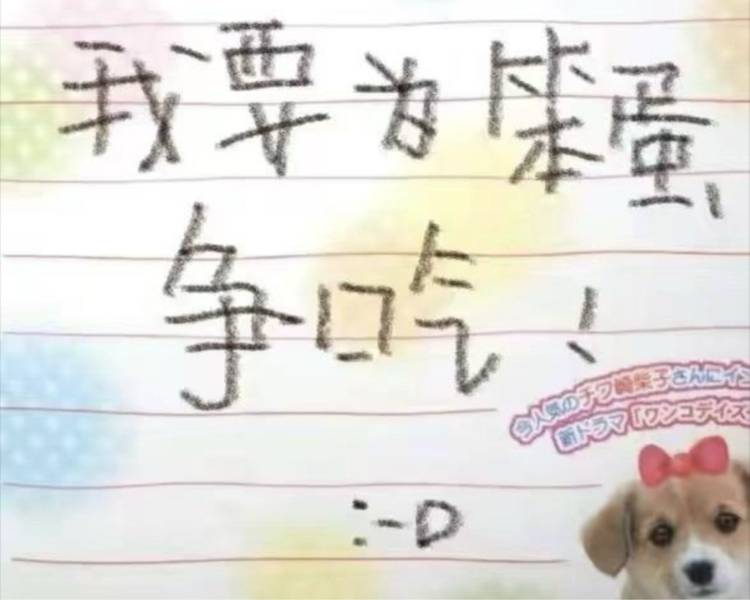 我要为笨蛋
争口气！
今人気のチワ崎柴子さんにイン
新ドラマ「ワンコデイズ
:-D